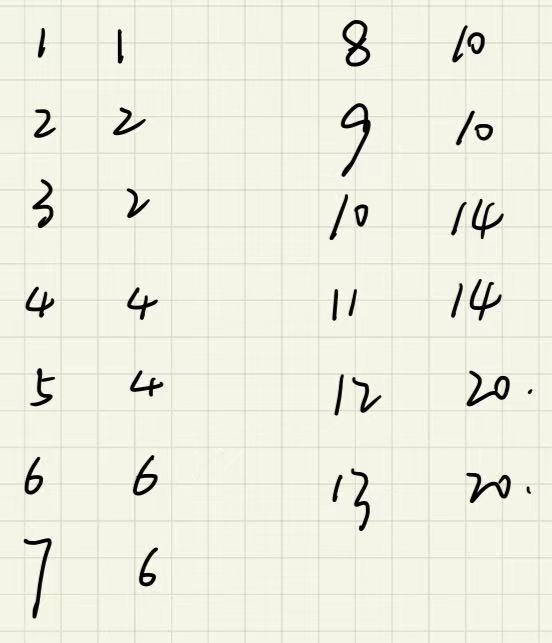 1 1
2 2
3 2
4 4
5 4
6 6
7 6
8 10
9 10
10 14
11 14
12 20.
13 20.